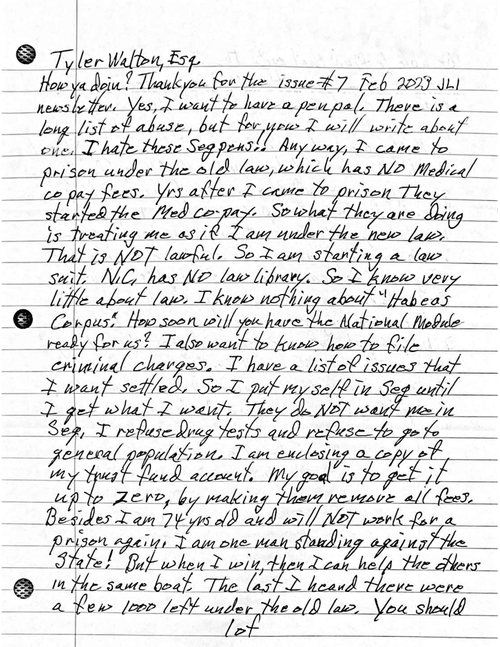 Tyler Walton, Esq
How ya doin? Thank you for the issue #7 Feb 2023 JLI
newsletter. Yes, I want to have a penpal. There is a
long list of abuse, but for now I will write about
one. I hate these Seg pens!! Any way, I came to
prison under the old law, which has NO Medical
co pay fees. Yrs after I came to prison They
started the Med co-pay. So what they are doing
is treating me as if I am under the new law.
That is NOT lawful. So I am starting a law
suit. N.C. has NO law library. So I know very
little about law. I know nothing about "Habeas
Corpus." How soon will you have the National Module
ready for us? I also want to know how to file
criminal charges. I have a list of issues that
I want settled. So I put myself in Seg until
I get what I want. They do NOT want me in
Seg. I refuse drug tests and refuse to go to
general population. I am enclosing a copy of
my trust fund account. My goal is to get it
up to zero, by making them remove all fees.
Besides I am 74 yrs old and will NOT work for a
prison again. I am one man standing against the
State! But when I win, then I can help the others
in the same boat. The last I heard there were
a few 1000 left under the old law. You should
1 of